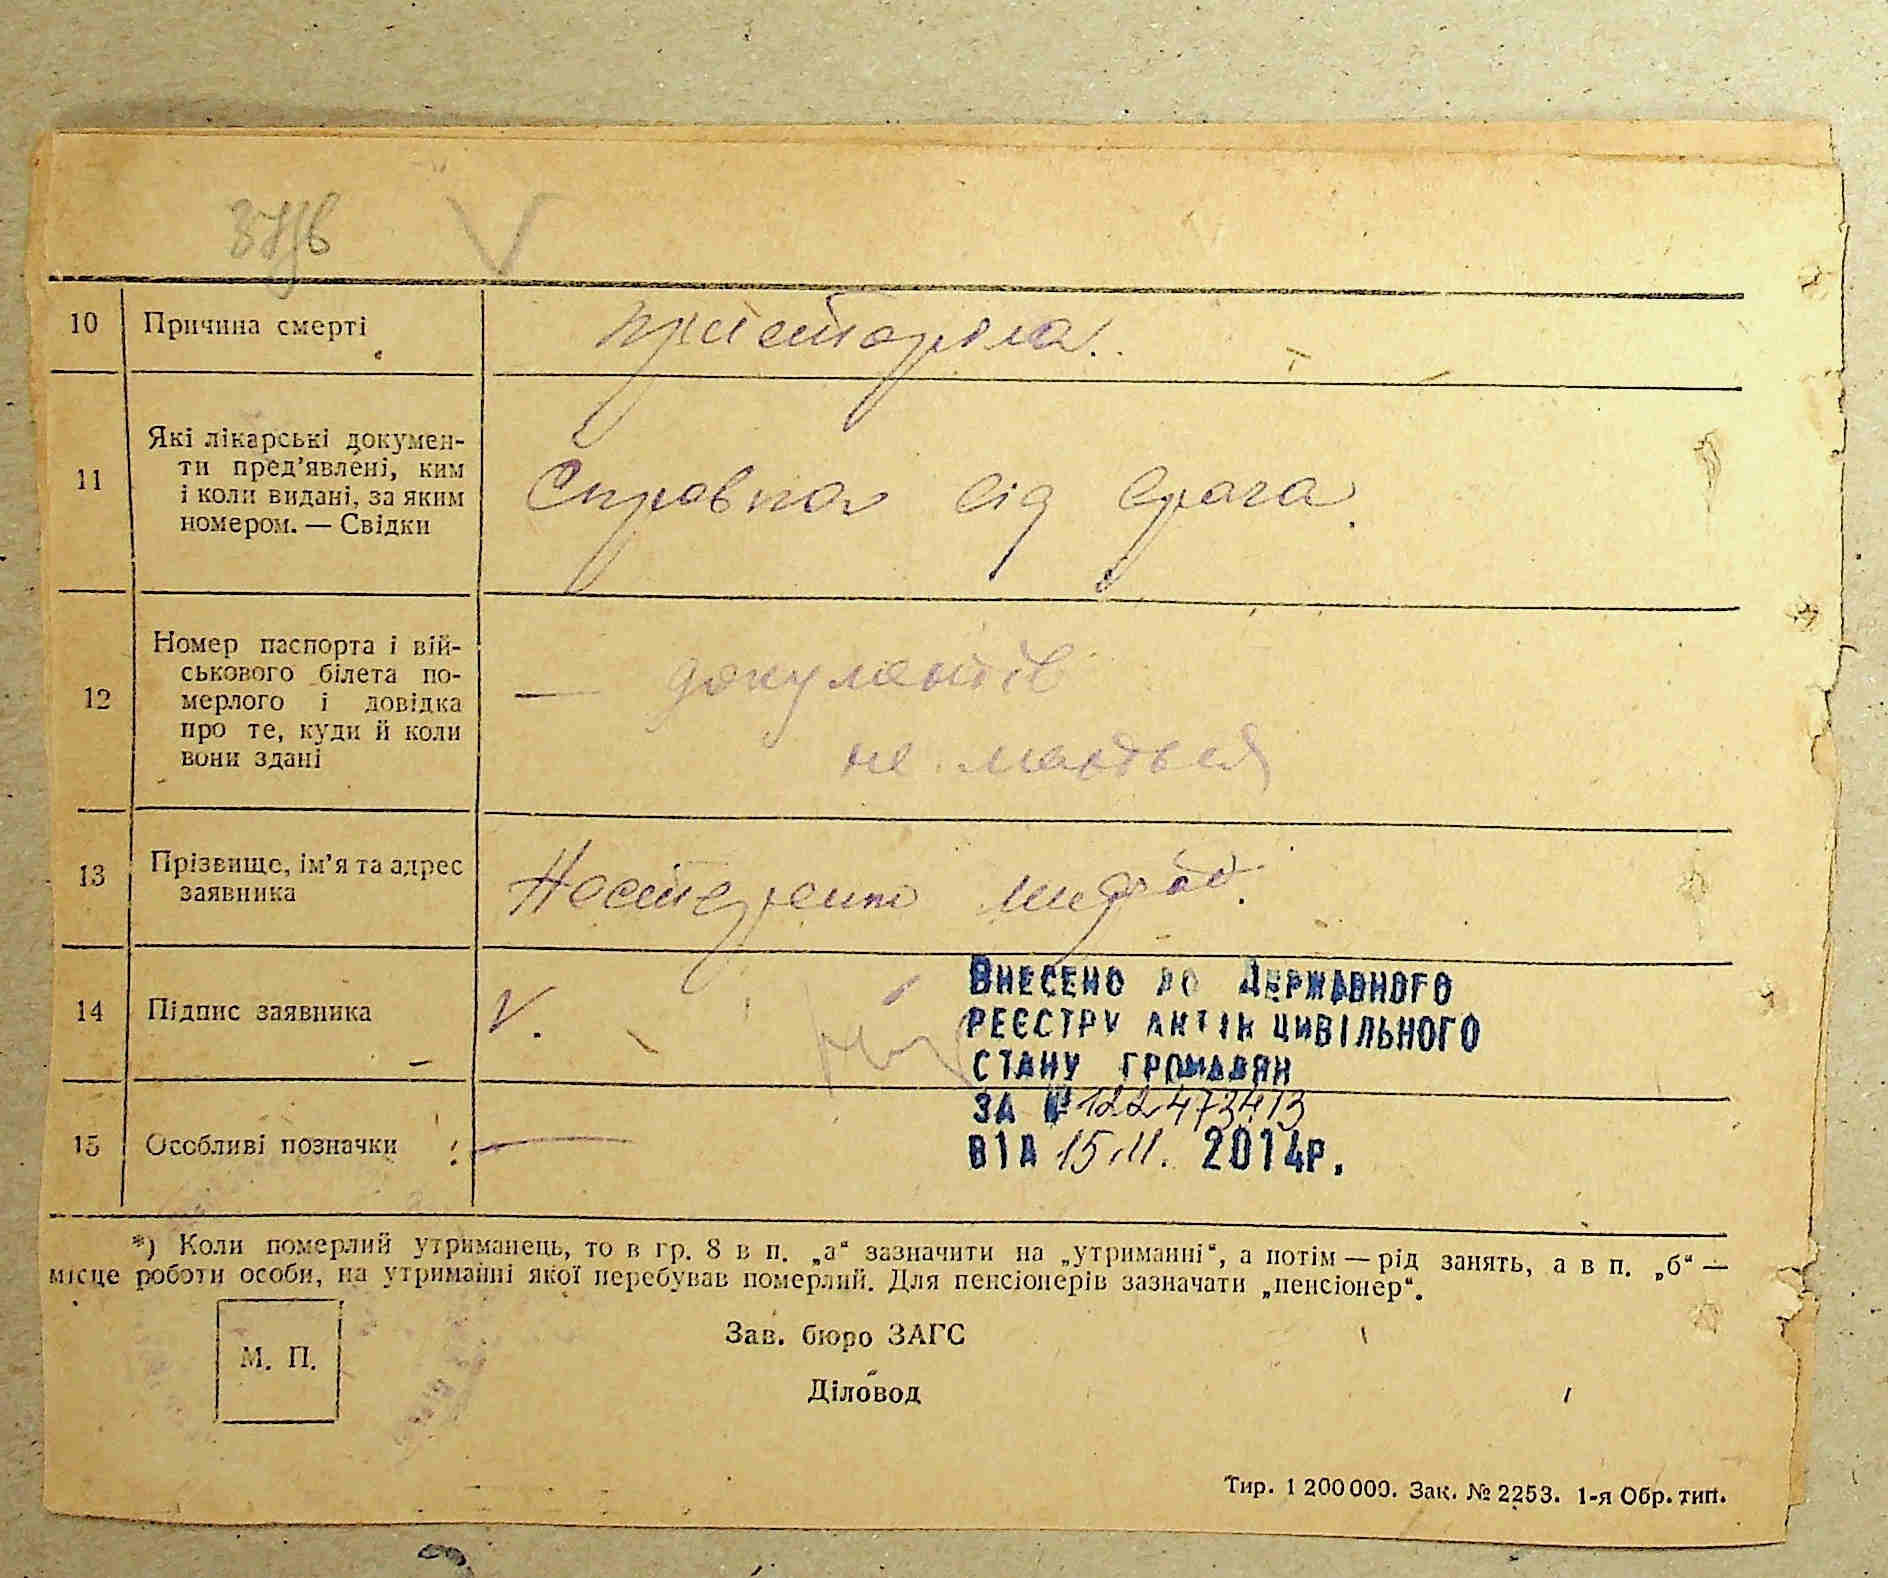 10 Причина смерті пристаріла.
11 Які лікарські докумен-
ти пред'явлені, ким
і коли видані, за яким
номером. — Свідки
Справка від врача.
12 Номер паспорта і вій-
ськового білета по-
мерлого і довідка
про те, куди й коли
вони здані
— документів
не мається
13 Прізвище, ім'я та адрес
заявника
14 Підпис заявника V.
15 Особливі позначки —
Внесено до Державного
реєстру актів цивільного
стану громадян
за № 122473413
від 15.11. 2014р.
*) Коли померлий утриманець, то в гр. 8 в п. „а“ зазначити на „утриманні“, а потім — рід занять, а в п. „б“ —
місце роботи особи, на утриманні якої перебував померлий. Для пенсіонерів зазначати „пенсіонер“.
М. П.
Зав. бюро ЗАГС
Діловод
Тир. 1 200 000. Зак. № 2253. 1-я Обр. тип.